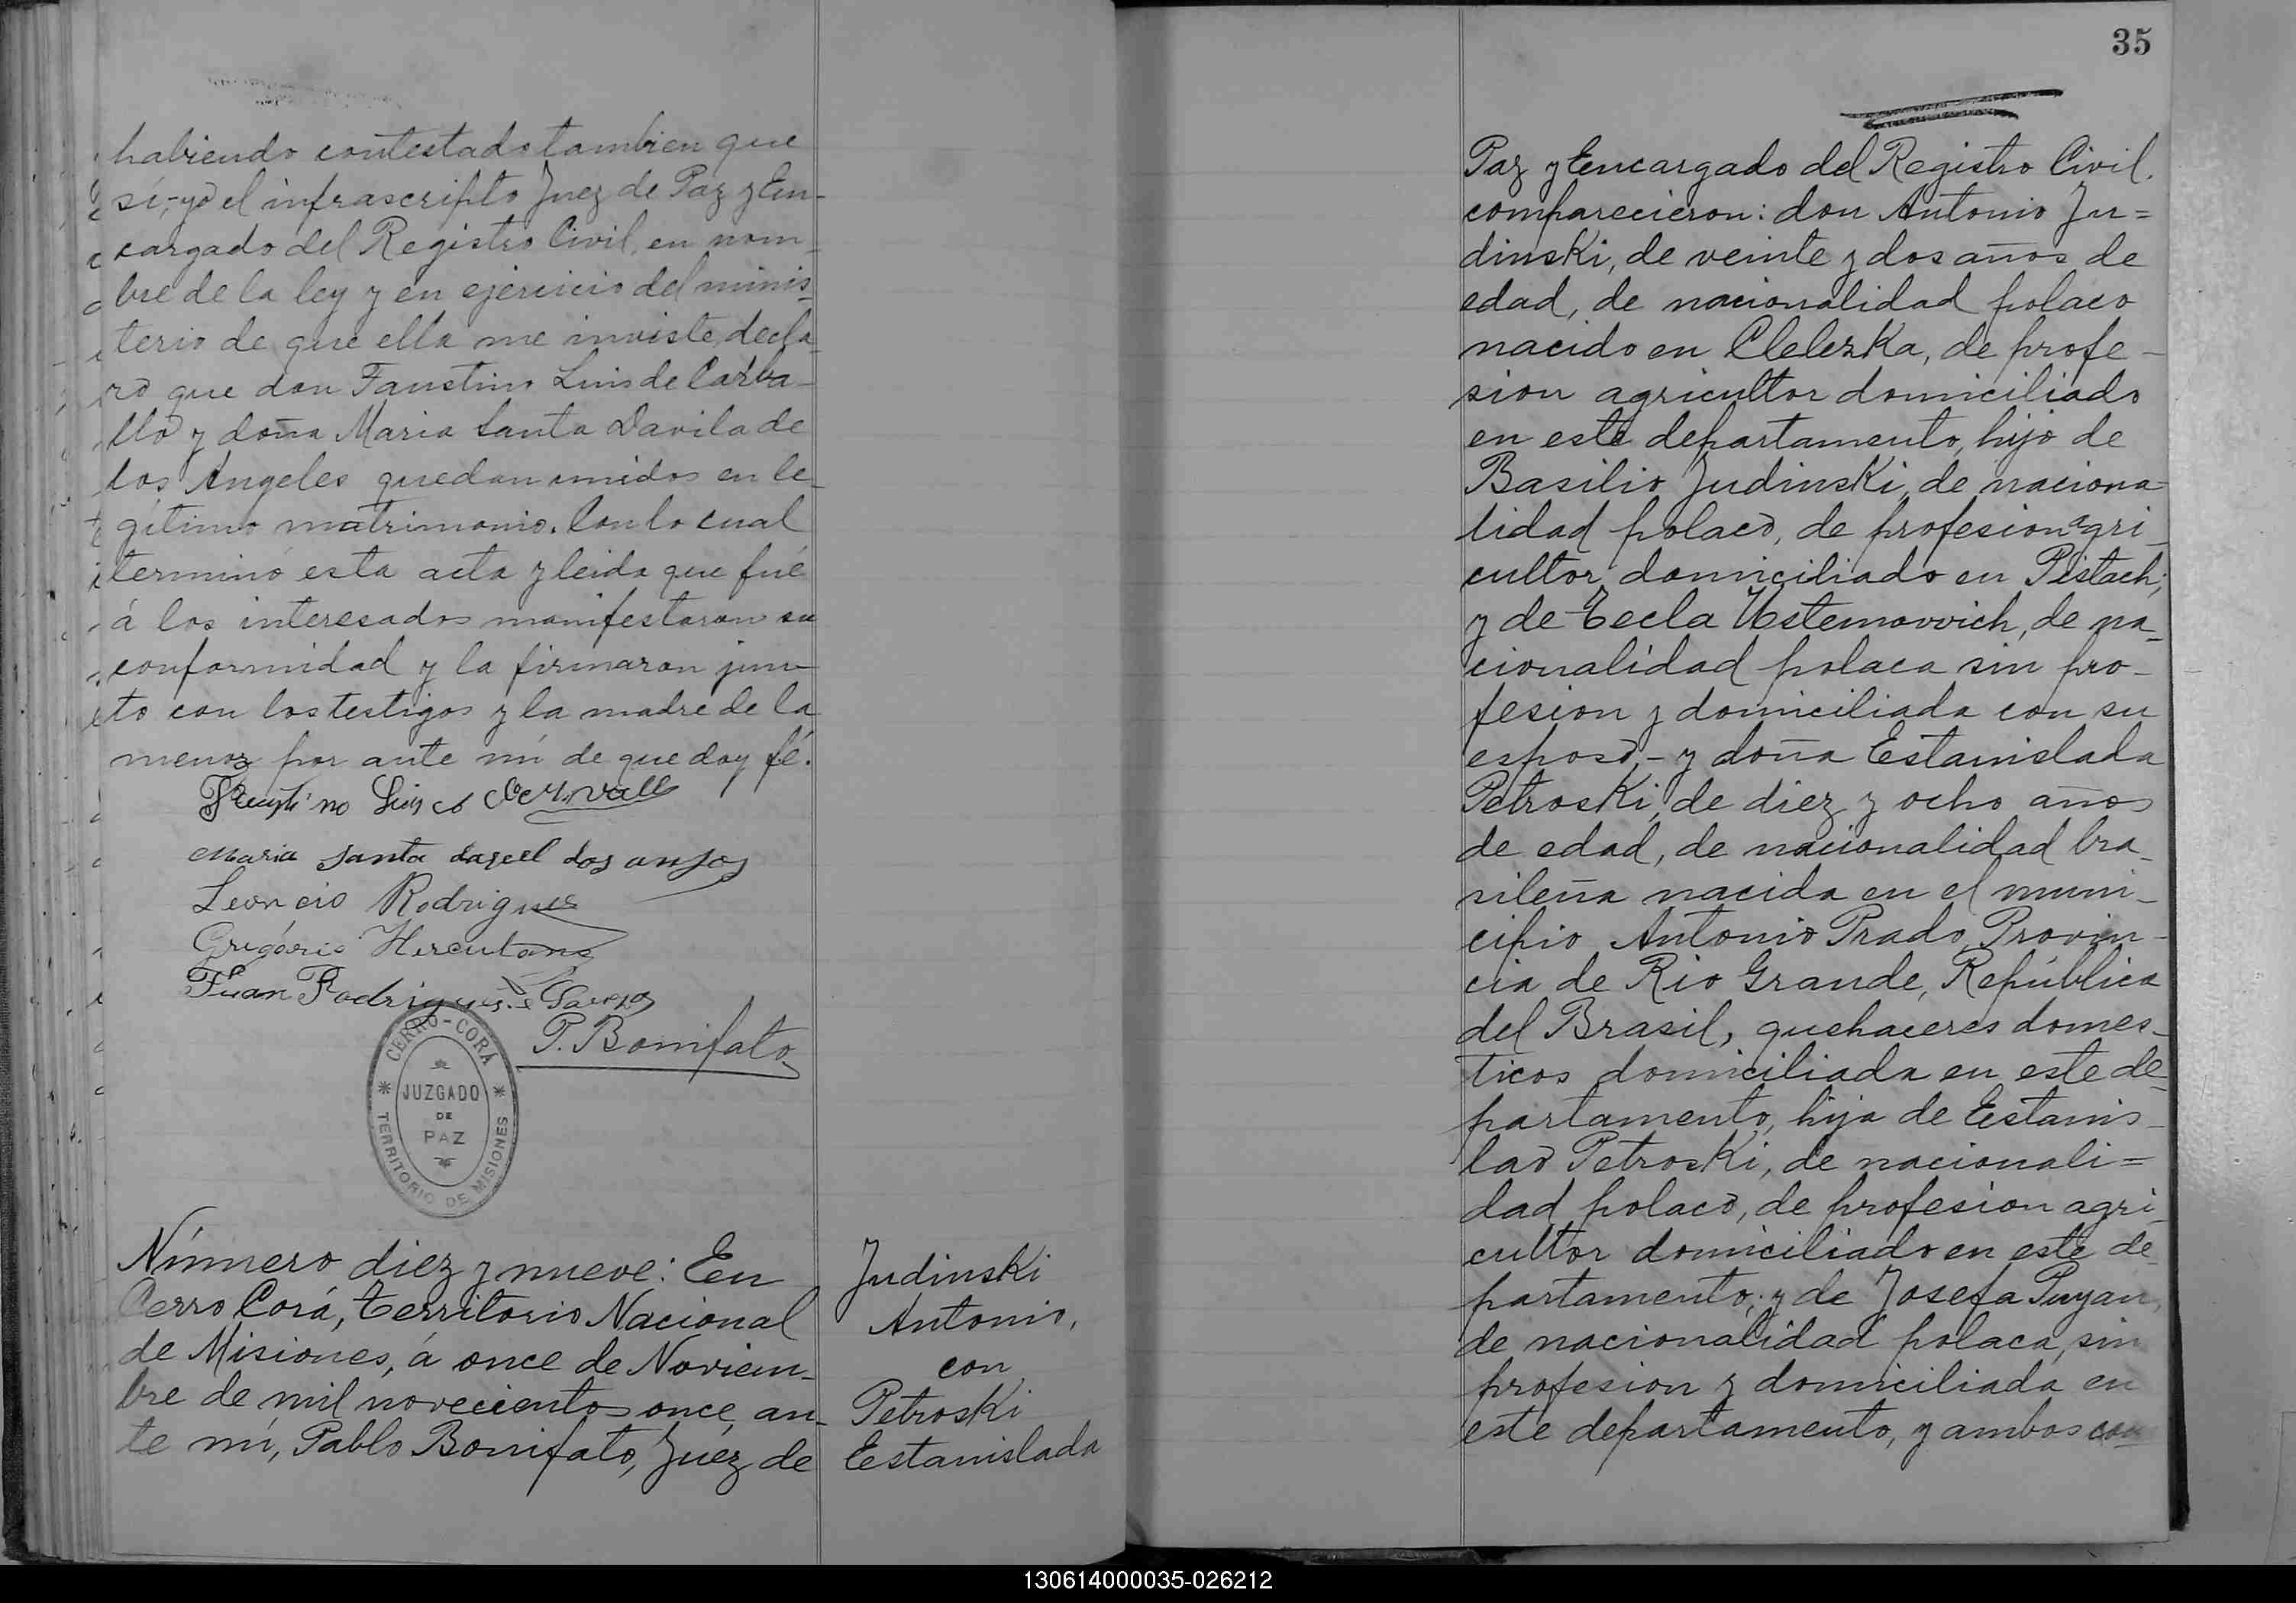 habiendo contestado tambien que
sí,- yo el infrascripto Juez de Paz y En-
cargado del Registro Civil, en nom-
bre de la ley y en ejercicio del minis-
terio de que ella me inviste, decla-
ro que don Faustino Luis de Carba-
llo y doña Maria Santa Davila de
los Angeles quedan unidos en le-
gítimo matrimonio. Con lo cual
terminó esta acta y leida que fué
á los interesados manifestaron su
conformidad y la firmaron jun-
to con los testigos y la madre de la
menor por ante mí de que doy fé.
Luis
Maria Santa dos anjos
Leoncio Rodrigues
Gregório Herculano
Juan Rodrigues
P. Bonifato
CERRO-CORÁ
JUZGADO
DE
PAZ
TERRITORIO DE MISIONES
Número diez y nueve: En
Cerro Corá, Territorio Nacional
de Misiones, á once de Noviem-
bre de mil novecientos once, an-
te mí, Pablo Bonifato, Juez de
Judinski
Antonio,
con
Petroski
Estanislada
35
Paz y Encargado del Registro Civil.
comparecieron: don Antonio Ju=
dinski, de veinte y dos años de
edad, de nacionalidad polaco
nacido en Clelezka, de profe-
sion agricultor domiciliado
en este departamento, hijo de
Basilio Judinski, de naciona-
lidad polaco, de profesion agri-
cultor domiciliado en Pistach;
y de Tecla Ustemovvich, de na-
cionalidad polaca sin pro-
fesion y domiciliada con su
esposo,- y doña Estanislada
Petroski, de diez y ocho años
de edad, de nacionalidad bra-
sileña nacida en el muni-
cipio Antonio Prado, Provin-
cia de Rio Grande, República
del Brasil, quehaceres domes-
ticos domiciliada en este de-
partamento, hija de Estanis-
lao Petroski, de nacionali=
dad polaco, de profesion agri-
cultor domiciliado en este de-
partamento; y de Josefa Puyan,
de nacionalidad polaca, sin
profesion y domiciliada en
este departamento, y ambos con
130614000035-026212